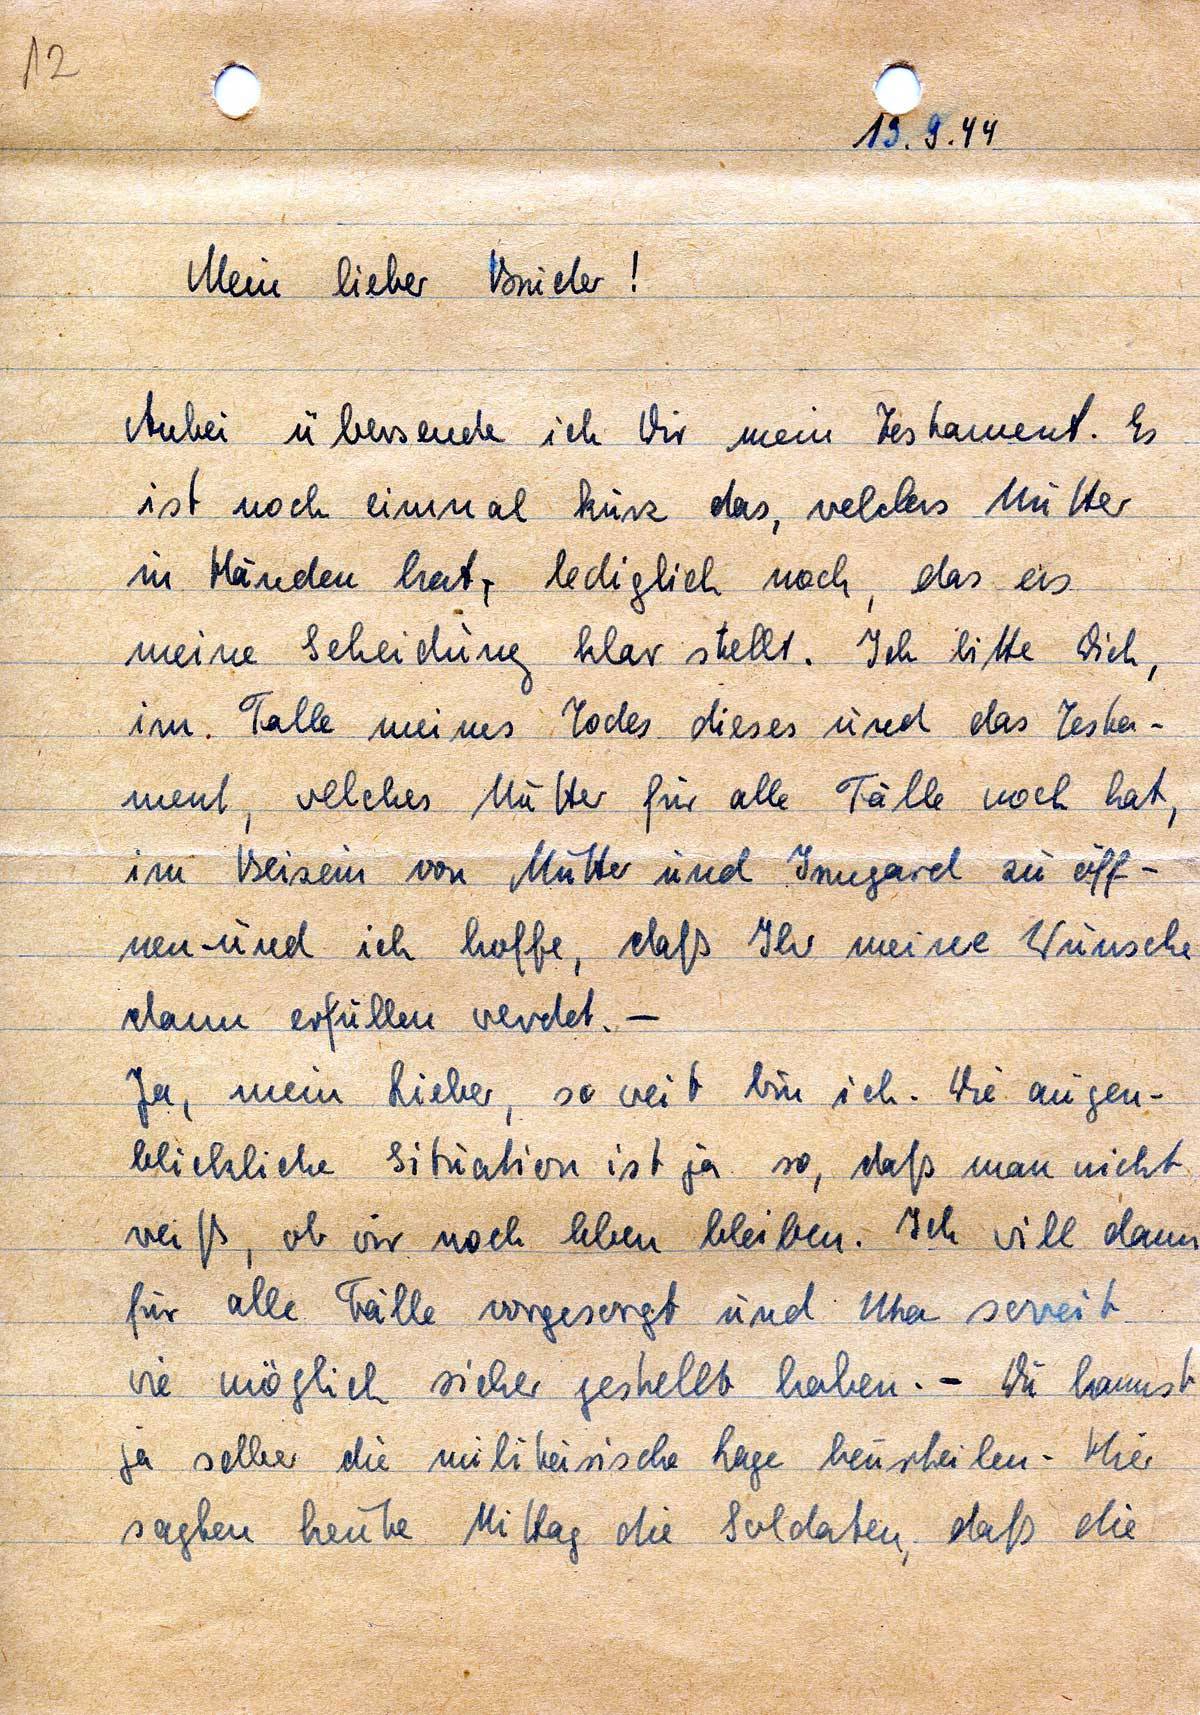 12
19. 9. 44
Mein lieber Bruder!
Anbei übersende ich Dir mein Testament. Es
ist noch einmal kurz das, welches Mutter
in Händen hat, lediglich noch, das es
meine Scheidung klar stellt. Ich bitte Dich,
im Falle meines Todes dieses und das Testa-
ment, welches Mutter für alle Fälle noch hat,
im Beisein von Mutter und Irmgard zu öff-
nen und ich hoffe, daß Ihr meine Wünsche
dann erfüllen werdet. —
Ja, mein Lieber, so weit bin ich. Die augen-
blickliche Situation ist ja so, daß man nicht
weiß, ob wir noch leben bleiben. Ich will dann
für alle Fälle vorgesorgt und Uta soweit
wie möglich sicher gestellt haben. — Du kannst
ja selber die militärische Lage beurteilen. Hier
sagten heute Mittag die Soldaten, daß die